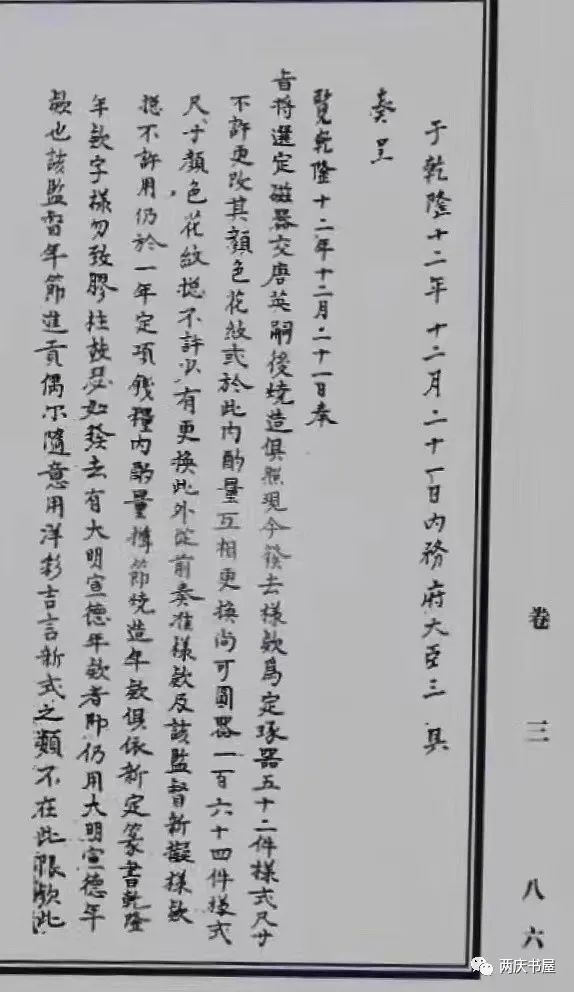 于乾隆十二年十二月二十一日内務府大臣三具
奏呈
覽乾隆十二年十二月二十一日奉
旨将選定磁器交唐英嗣後燒造俱照現今發去樣欵爲定琢器五十二件樣式尺寸
不許更改其顏色花紋或於此内酌量互相更换尚可圓器一百六十四件樣式
尺寸顏色花紋摠不許少有更换此外從前奏准樣欵及該監督新擬樣欵
摠不許用仍於一年定項錢糧内酌量撙節燒造年欵俱依新定篆書乾隆
年欵字樣勿致膠柱鼓瑟如發去有大明宣德年欵者即仍用大明宣德年
欵也該監督年節進貢偶尔隨意用洋彩吉言新式之類不在此限欽此
卷三
八六
两庆书屋